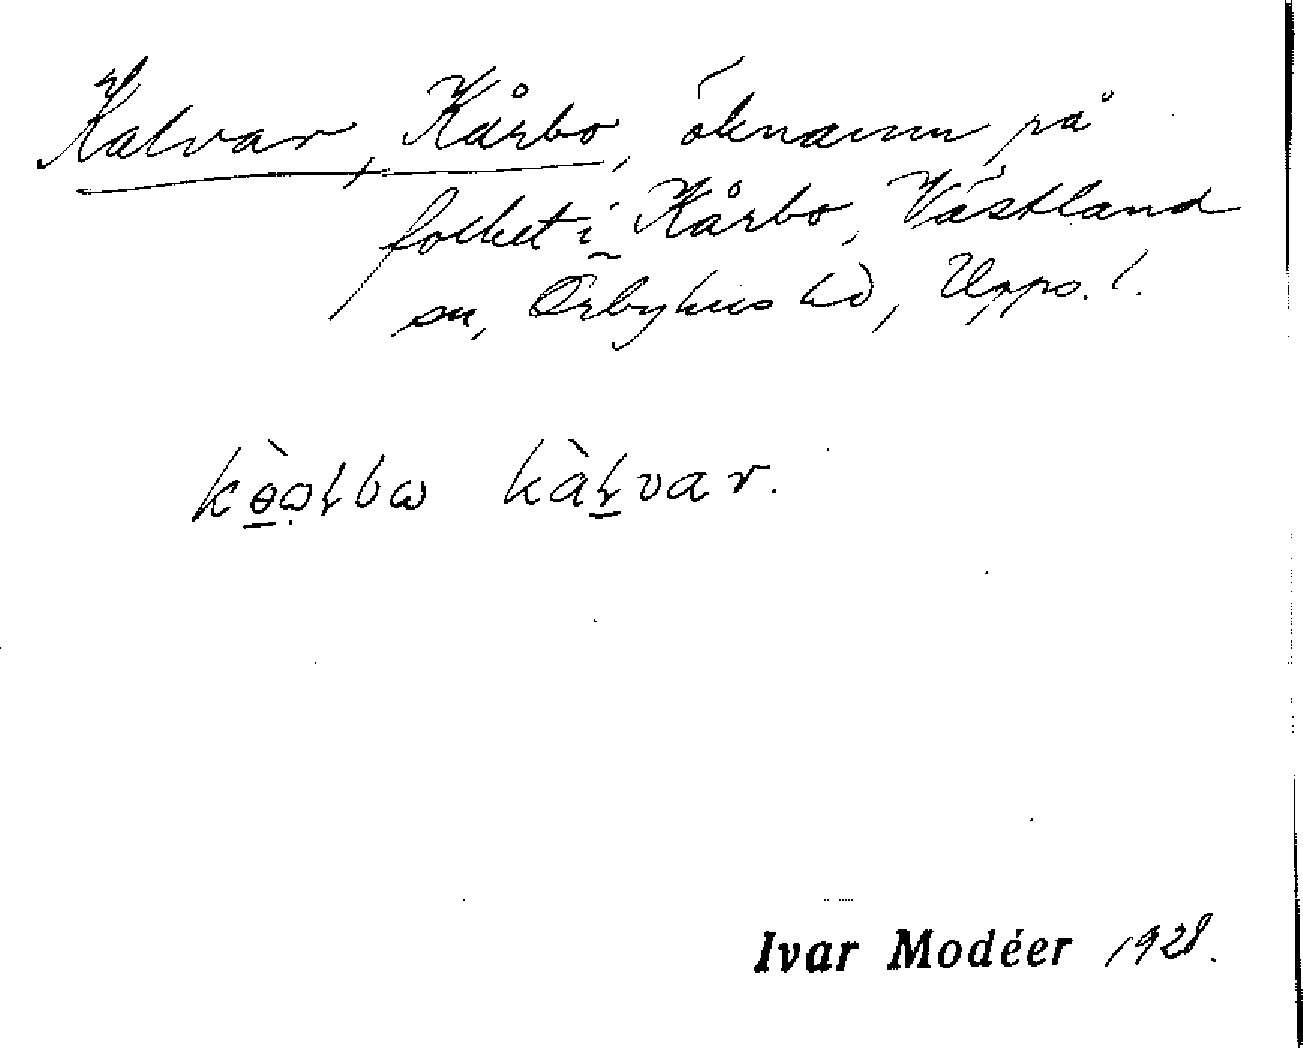 Kalvar, Kårbo, öknamn på
folket i Kårbo, Västland
sn, Örbyhus hd, Upps. l.
kàɽvar.
Ivar Modéer 1928.